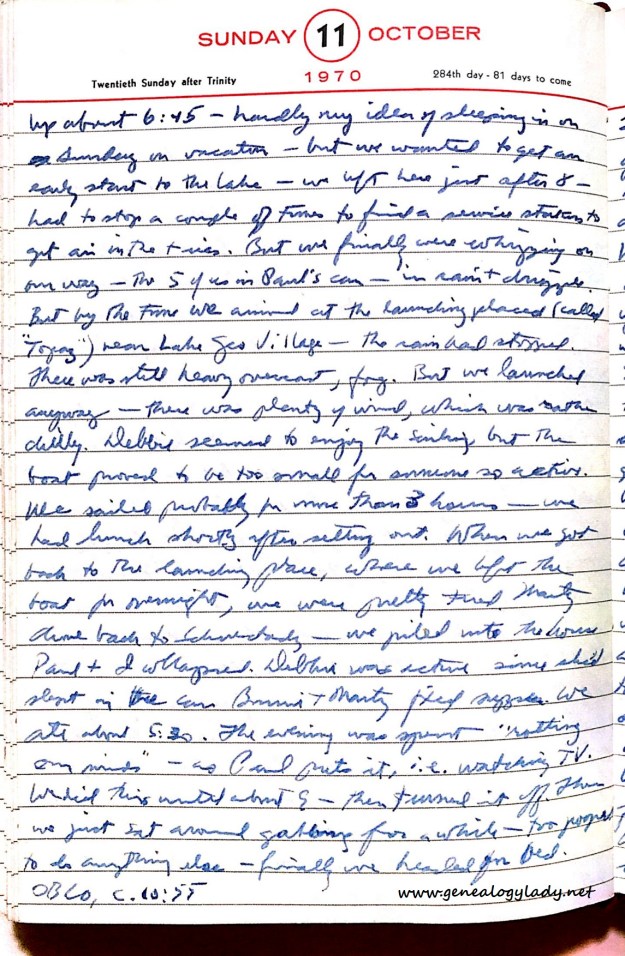 SUNDAY 11 OCTOBER
Twentieth Sunday after Trinity 1970 284th day - 81 days to come
Up about 6:45 – hardly my idea of sleeping in on
Sunday on vacation – but we wanted to get an
early start to the lake – we left here just after 8 –
had to stop a couple of times to find a service station to
get air in the tires. But we finally were whipping on
our way – the 5 of us in Paul's car – in rain + drizzle.
But by the time we arrived at the launching placed (called
"Topaz") near Lake Geo Village – the rain had stopped.
There was still heavy overcast, fog. But we launched
anyway – there was plenty of wind, which was rather
chilly. Debbie seemed to enjoy the sailing but the
boat proved to be too small for someone so active.
We sailed probably for more than 3 hours – we
had lunch shortly after setting out. When we got
back to the launching place, where we left the
boat for overnight, we were pretty tired. Marty
drove back to Schenectady – we piled into the house
Paul + I collapsed. Debbie was active since she'd
slept in the car. Bunni + Marty fixed supper. We
ate about 5:30. The evening was spent "rotting
our minds" – as Paul puts it, i.e. watching TV.
We did this until about 9 – then turned it off. Then
we just sat around gabbing for a while – too pooped
to do anything else – finally we headed for bed.
OBLO, c. 10:55
www.genealogylady.net